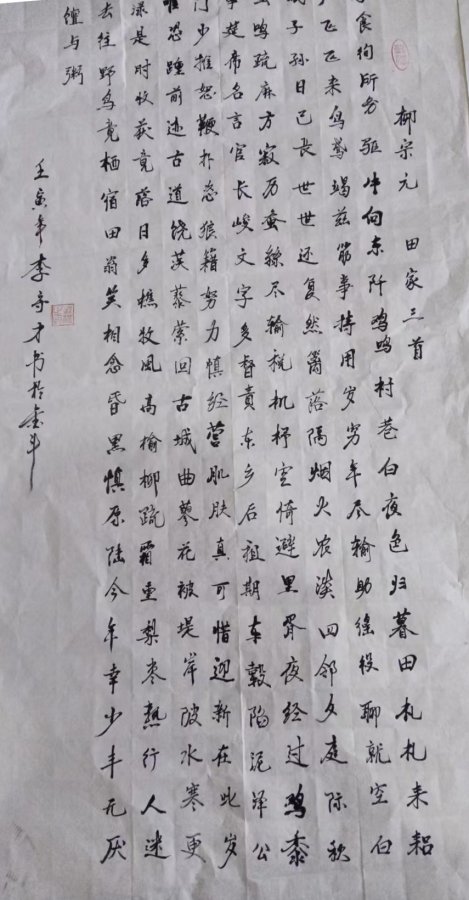 柳宗元 田家三首
食徇所务驱牛向东阡鸡鸣村巷白夜色归暮田札札耒耜
飞飞来乌鸢竭兹筋事持用岁穷年尽输助徭役聊就空白
子孙日已长世世还复然篱落隔烟火农谈四邻夕庭际秋
虫鸣疏麻方寂历蚕丝尽输税机杼空倚避里胥夜经过鸡黍
事筵席名言官长峻文字多督责东乡后祖期车毂陷泥泽公
门少推恕鞭扑恣狼籍努力慎经营肌肤真可惜迎新在此岁
唯恐踵前迹古道饶蒺藜萦回古城曲蓼花被堤岸陂水寒更
渌是时收获竟落日多樵牧风高榆柳疏霜重梨枣熟行人迷
去往野鸟竟栖宿田翁笑相念昏黑慎原陆今年幸少丰无厌
饘与粥
壬寅年李奇才书於